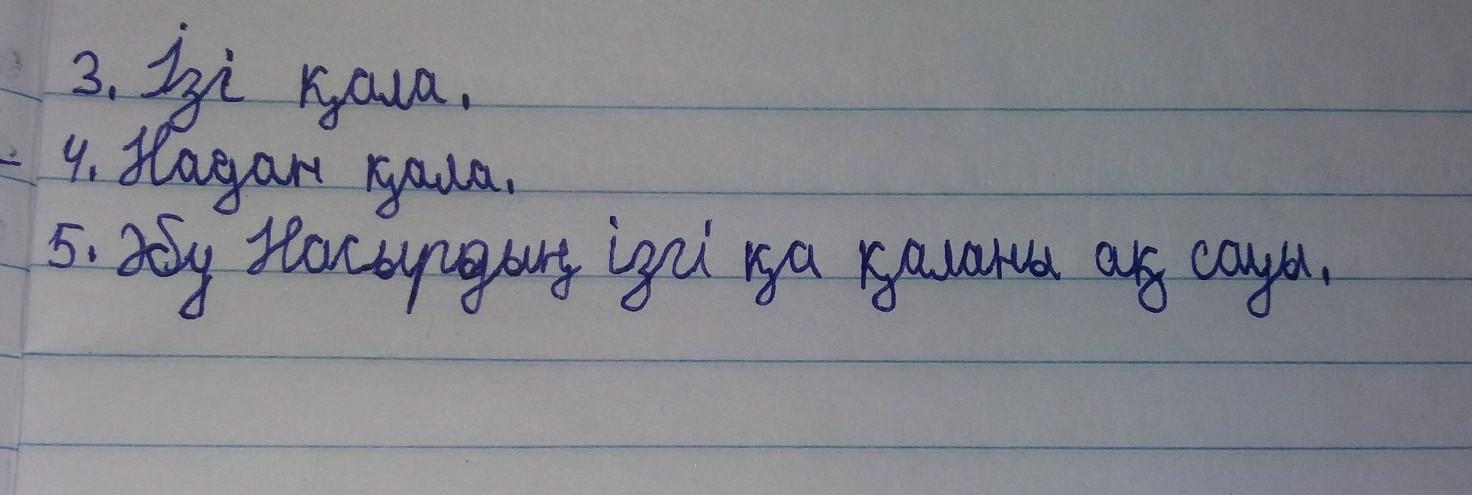 3. Ізі қала.
4. Надан қала.
5. Әбу Насырдың ізгі қа қаланы ақ сауы.